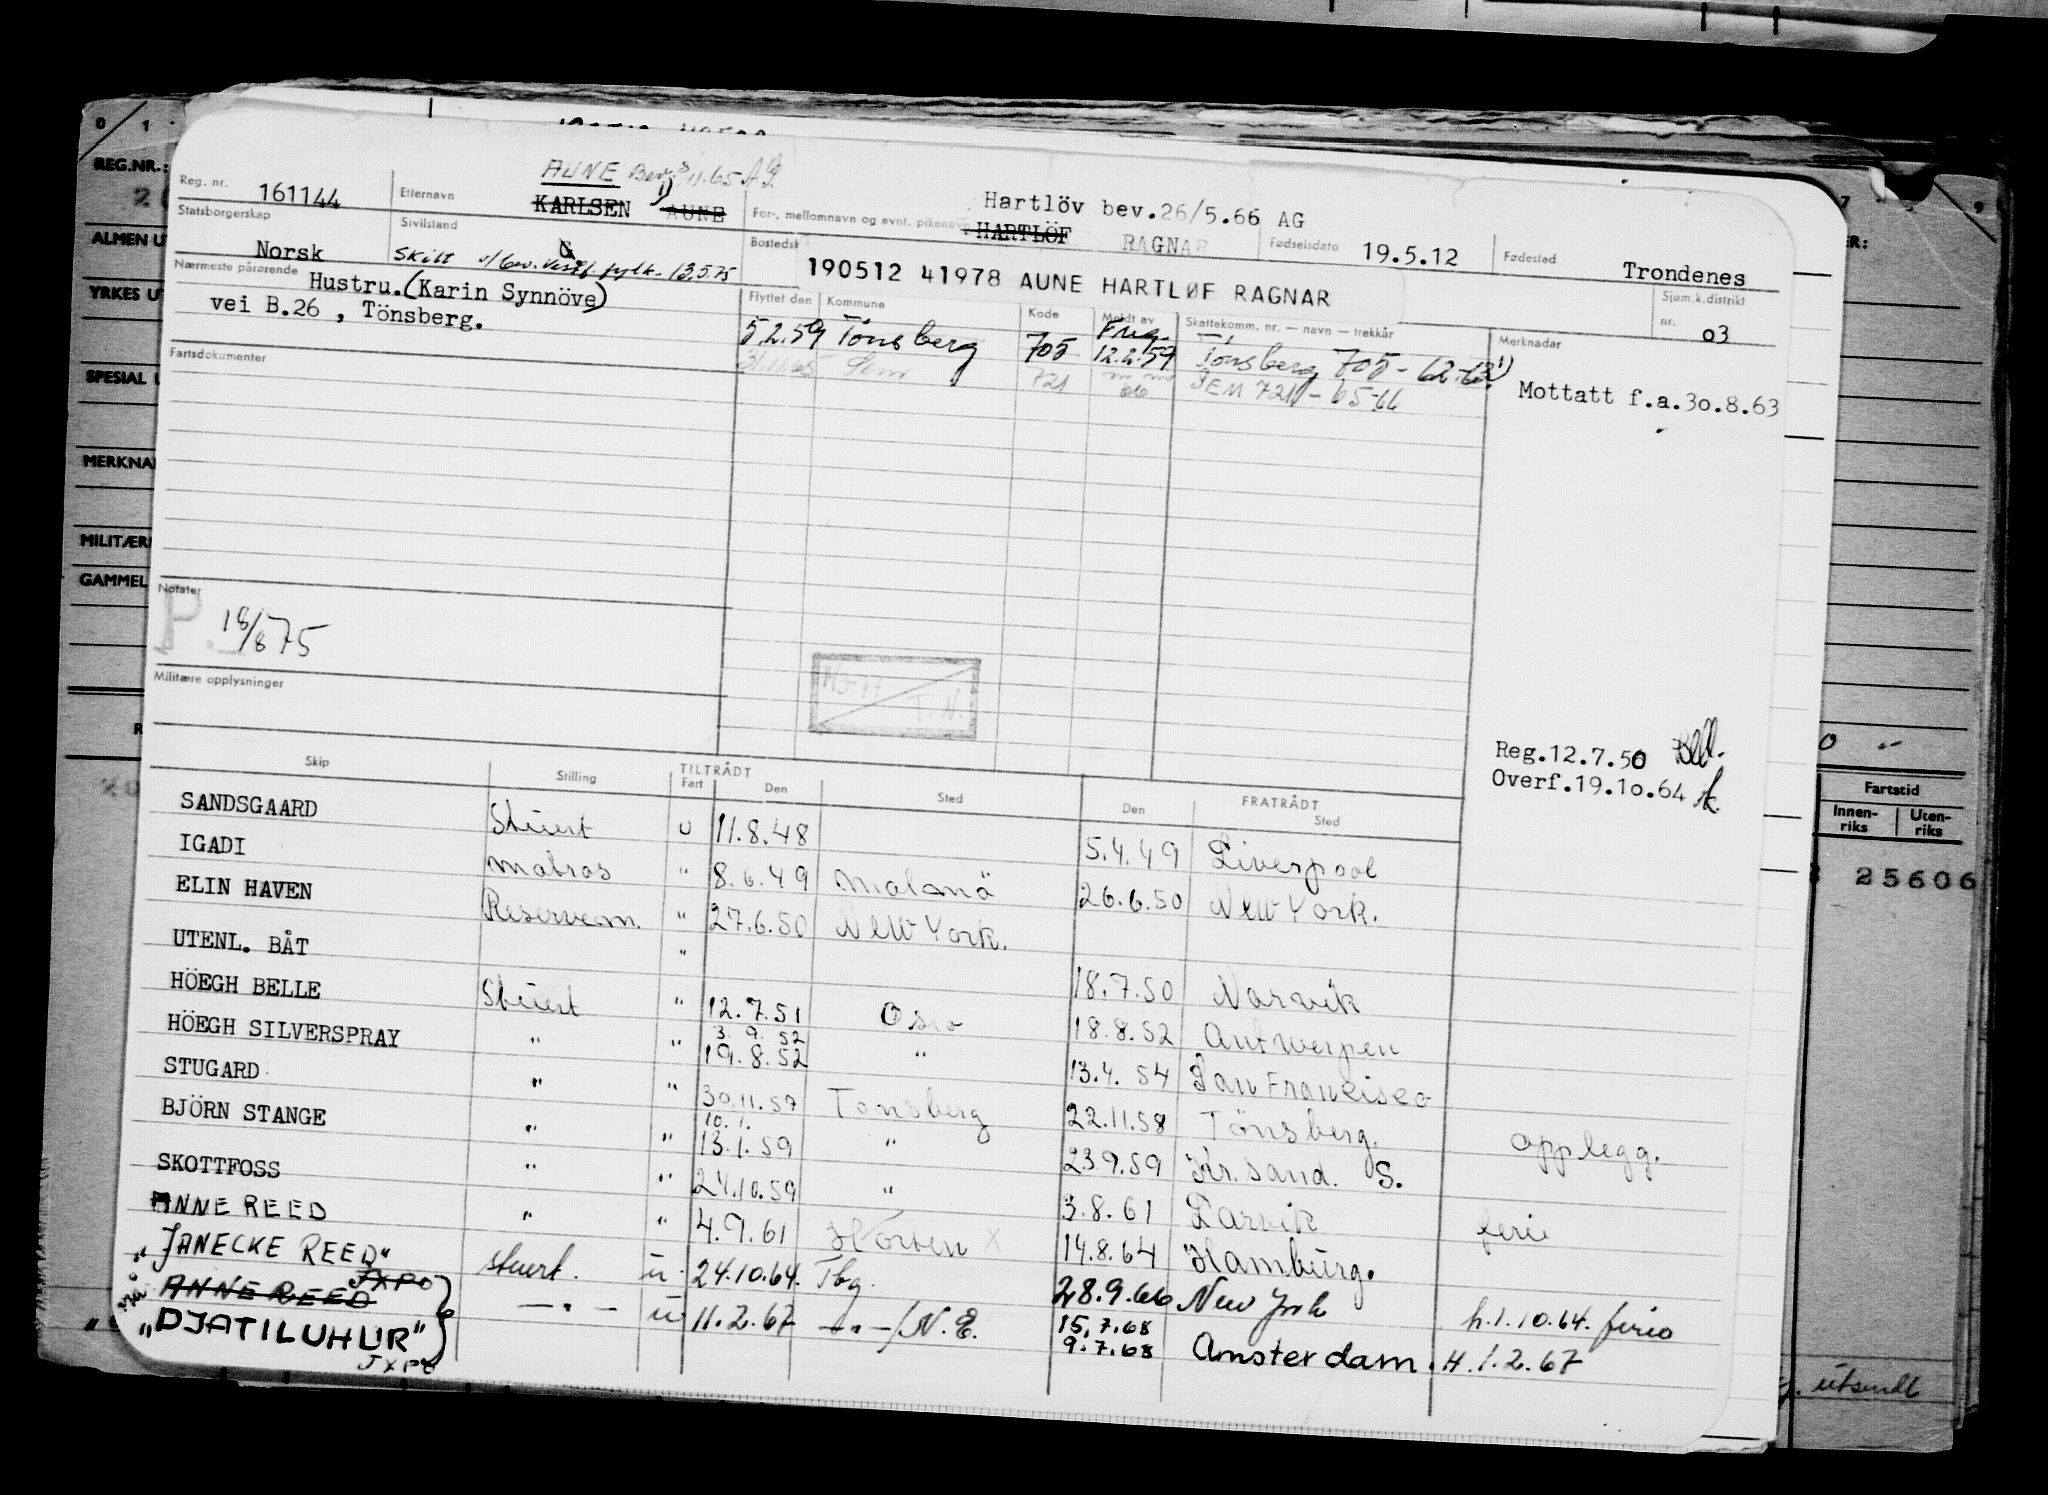 0 1
REG.NR.:
ALMEN U
YRKES U
SPESIAL U
MERKNA
MILITÆR
GAMMEL
AUNE Bev. 3/11.65 AG
Reg. nr. 161144 Etternavn KARLSEN AUNE For-, mellomnavn og evnt. pikenavn HARTLÖF Hartlöv bev.26/5.66 AG RAGNAR Fødselsdato 19.5.12 Fødested Trondenes
Statsborgerskap Norsk Sivilstand G Skilt v/bev. Vestf. fylk. 13.5.75 Bosteds
190512 41978 AUNE HARTLØF RAGNAR
Nærmeste pårørende Hustru.(Karin Synnöve)
vei B.26 , Tönsberg.
Flyttet den Kommune Kode Meldt av Skattekomm. nr. — navn — trekkår Sjøm.k.distrikt nr. 03
5.2.59 Tönsberg 705 12.2.59 Tönsberg 705 - 62-63 1)
31.11.65 Sem 721 66 SEM 721 - 65-66
Merknader
Mottatt f.a.30.8.63
Fartsdokumenter
Notater
P. 18/8 75
Militære opplysninger
T.N.
Reg.12.7.50
Overf.19.10.64
Skip Stilling TILTRÅDT Fart Den Sted FRATRÅDT Den Sted
SANDSGAARD Stuert u 11.8.48 5.4.49 Liverpool
IGADI matros " 8.6.49 Malmö 26.6.50 New York.
ELIN HAVEN Reservem. " 27.6.50 New York.
UTENL. BÅT " 18.7.50 Narvik
HÖEGH BELLE Stuert " 12.7.51 Oslo 18.8.52 Antwerpen
HÖEGH SILVERSPRAY " " 3.9.52 19.8.52 " 13.4.54 San Francisco
STUGARD " " 30.11.57 Tönsberg 22.11.58 Tönsberg. opplegg.
BJÖRN STANGE " " 10.1. 13.1.59 " 23.9.59 Kr.sand. S.
SKOTTFOSS " " 24.10.59 " 3.8.61 Larvik ferie
ANNE REED " " 4.9.61 Horten X 14.8.64 Hamburg.
"JANECKE REED" JXPO stuert. u. 24.10.64. Tbg. 28.9.66 New York h.1.10.64. ferie
nå ANNE REED
"DJATILUHUR" JXPO — " — u. 11.2.67 — " — /N.E. 15.7.68 9.7.68 Amsterdam. H.1.2.67
Fartstid
Innen-riks Uten-riks
25606
utsendt